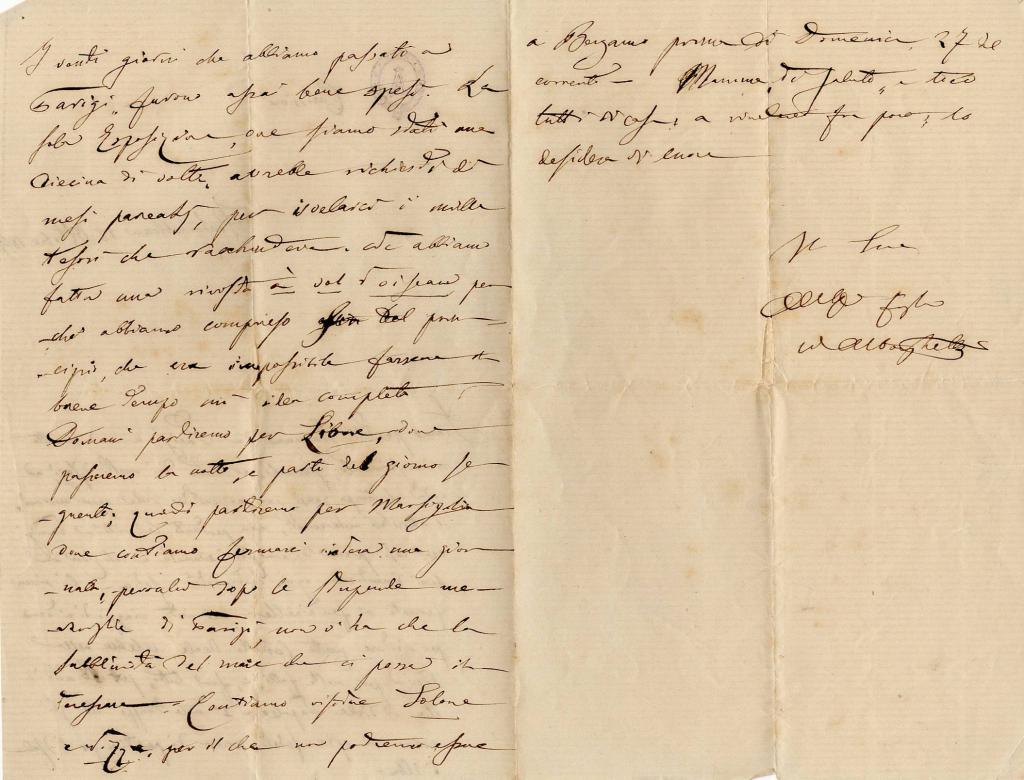 I venti giorni che abbiamo passati a
Parigi, furon assai bene spesi. La
sola Esposizione, ove siamo stati una
diecina di volte, avrebbe richiesti di
mesi parecchi, per isvelarci i mille
tesori che racchiudeva. Noi abbiamo
fatta una rivista à vol d'oiseau per
-chè abbiamo compreso del prin-
-cipio, che era impossibile farsene in
breve tempo un'idea completa.
Domani partiremo per Lione, dove
passeremo la notte, e parte del giorno se
-guente; quindi partiremo per Marsiglia
dove contiamo fermarci intera una gior
-nata, perocchè dopo le stupende me-
-raviglie di Parigi, non v'ha che la
sublimità del mare che ci possa in
teressare. Contiamo visitare Tolone
e Nizza, per il che non potremo essere
a Bergamo prima di Domenica, 27 del
corrente - Mamma, ti saluto, e teco
tutti di casa; a rivederci fra poco; lo
desidera di cuore
Il tuo
figlio